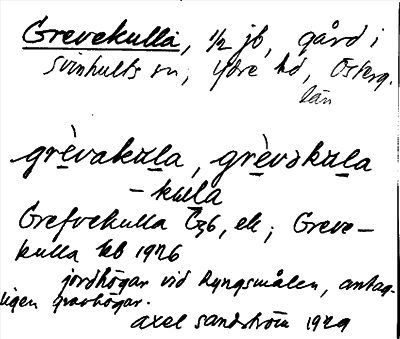 Grevekulla, 1/2 jb, gård i
Svinhults sn, Ydre hd, Österg.
län
grèvakula, grèvəkula
- kulla
Grefvekulla G36, ek; Greve-
kulla kb 1926
jordhögar vid Ryngsmålen, antag-
ligen gravhögar.
Axel Sandström 1929